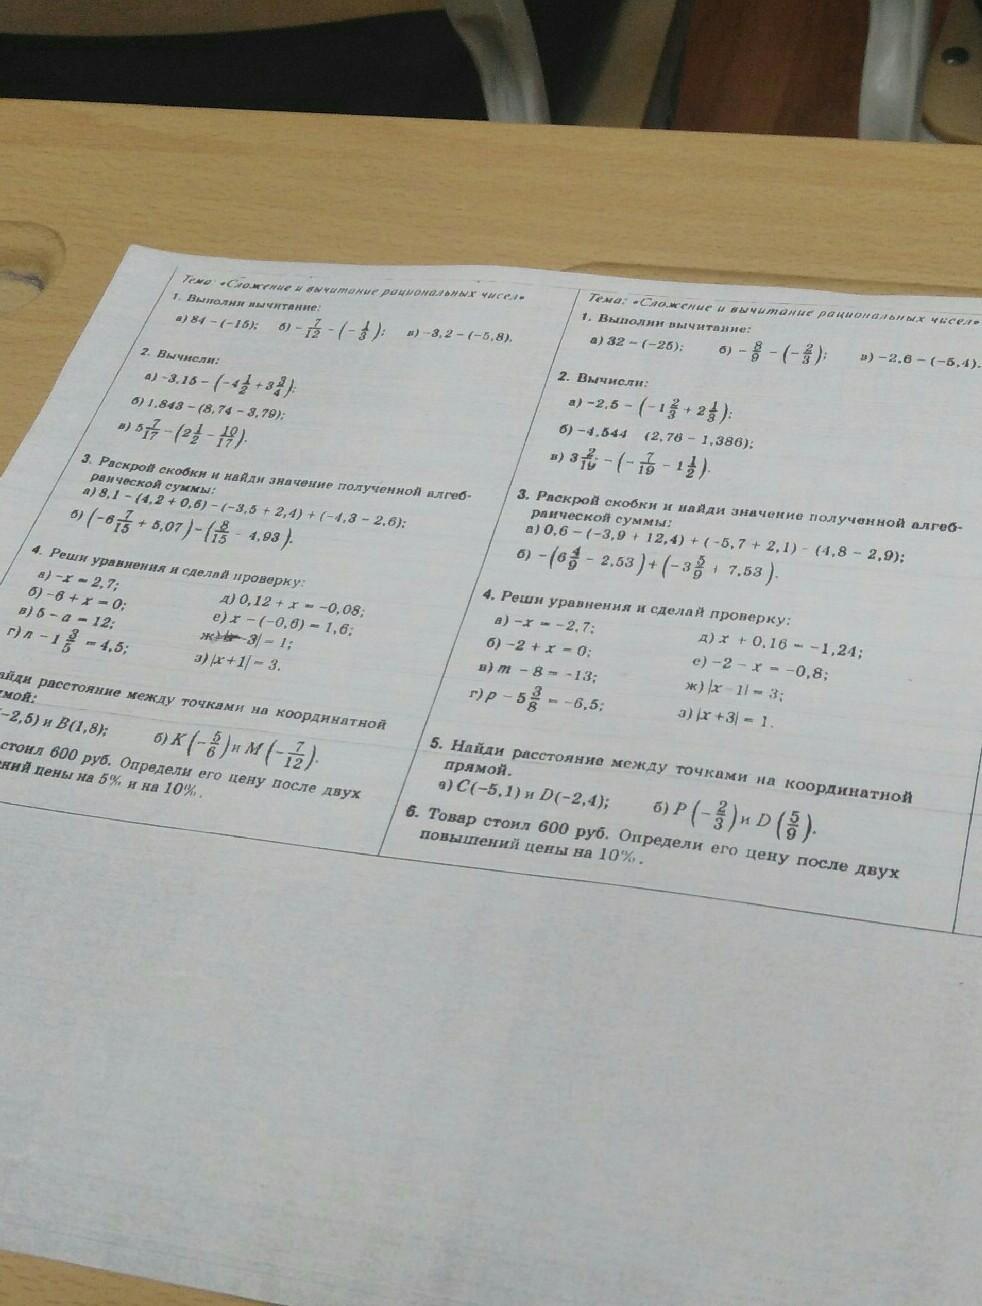 Тема: «Сложение и вычитание рациональных чисел»
1. Выполни вычитание:
а) 84 − (−15); б) −7/12 − (−1/3); в) −3,2 − (−5,8).
2. Вычисли:
а) −3,15 − (−4 1/2 + 3 3/4);
б) 1,843 − (8,74 − 3,79);
в) 5 7/17 − (2 1/2 − 10/17).
3. Раскрой скобки и найди значение полученной алгеб-
раической суммы:
а) 8,1 − (4,2 + 0,6) − (−3,5 + 2,4) + (−4,3 − 2,6);
б) (−6 7/15 + 5,07) − (8/15 − 4,93).
4. Реши уравнения и сделай проверку:
а) −x = 2,7;
б) −6 + x = 0; д) 0,12 + x = −0,08;
в) 5 − a = 12; е) x − (−0,6) = 1,6;
г) n − 1 3/5 = 4,5; ж) − 3| = 1;
з) |x+1| = 3.
айди расстояние между точками на координатной
мой:
−2,5) и B(1,8); б) K(−5/6) и M(−7/12).
стоил 600 руб. Определи его цену после двух
ний цены на 5% и на 10%.
Тема: «Сложение и вычитание рациональных чисел»
1. Выполни вычитание:
а) 32 − (−25); б) −8/9 − (−2/3); в) −2,6 − (−5,4).
2. Вычисли:
а) −2,5 − (−1 2/3 + 2 1/3);
б) −4,544 (2,76 − 1,386);
в) 3 2/19 − (−7/19 − 1 1/2).
3. Раскрой скобки и найди значение полученной алгеб-
раической суммы:
а) 0,6 − (−3,9 + 12,4) + (−5,7 + 2,1) − (4,8 − 2,9);
б) −(6 4/9 − 2,53) + (−3 5/9 + 7,53).
4. Реши уравнения и сделай проверку:
а) −x = −2,7; д) x + 0,16 = −1,24;
б) −2 + x = 0; е) −2 − x = −0,8;
в) m − 8 = −13; ж) |x − 1| = 3;
г) p − 5 3/8 = −6,5; з) |x +3| = 1.
5. Найди расстояние между точками на координатной
прямой.
а) C(−5,1) и D(−2,4); б) P(−2/3) и D(5/9).
6. Товар стоил 600 руб. Определи его цену после двух
повышений цены на 10%.